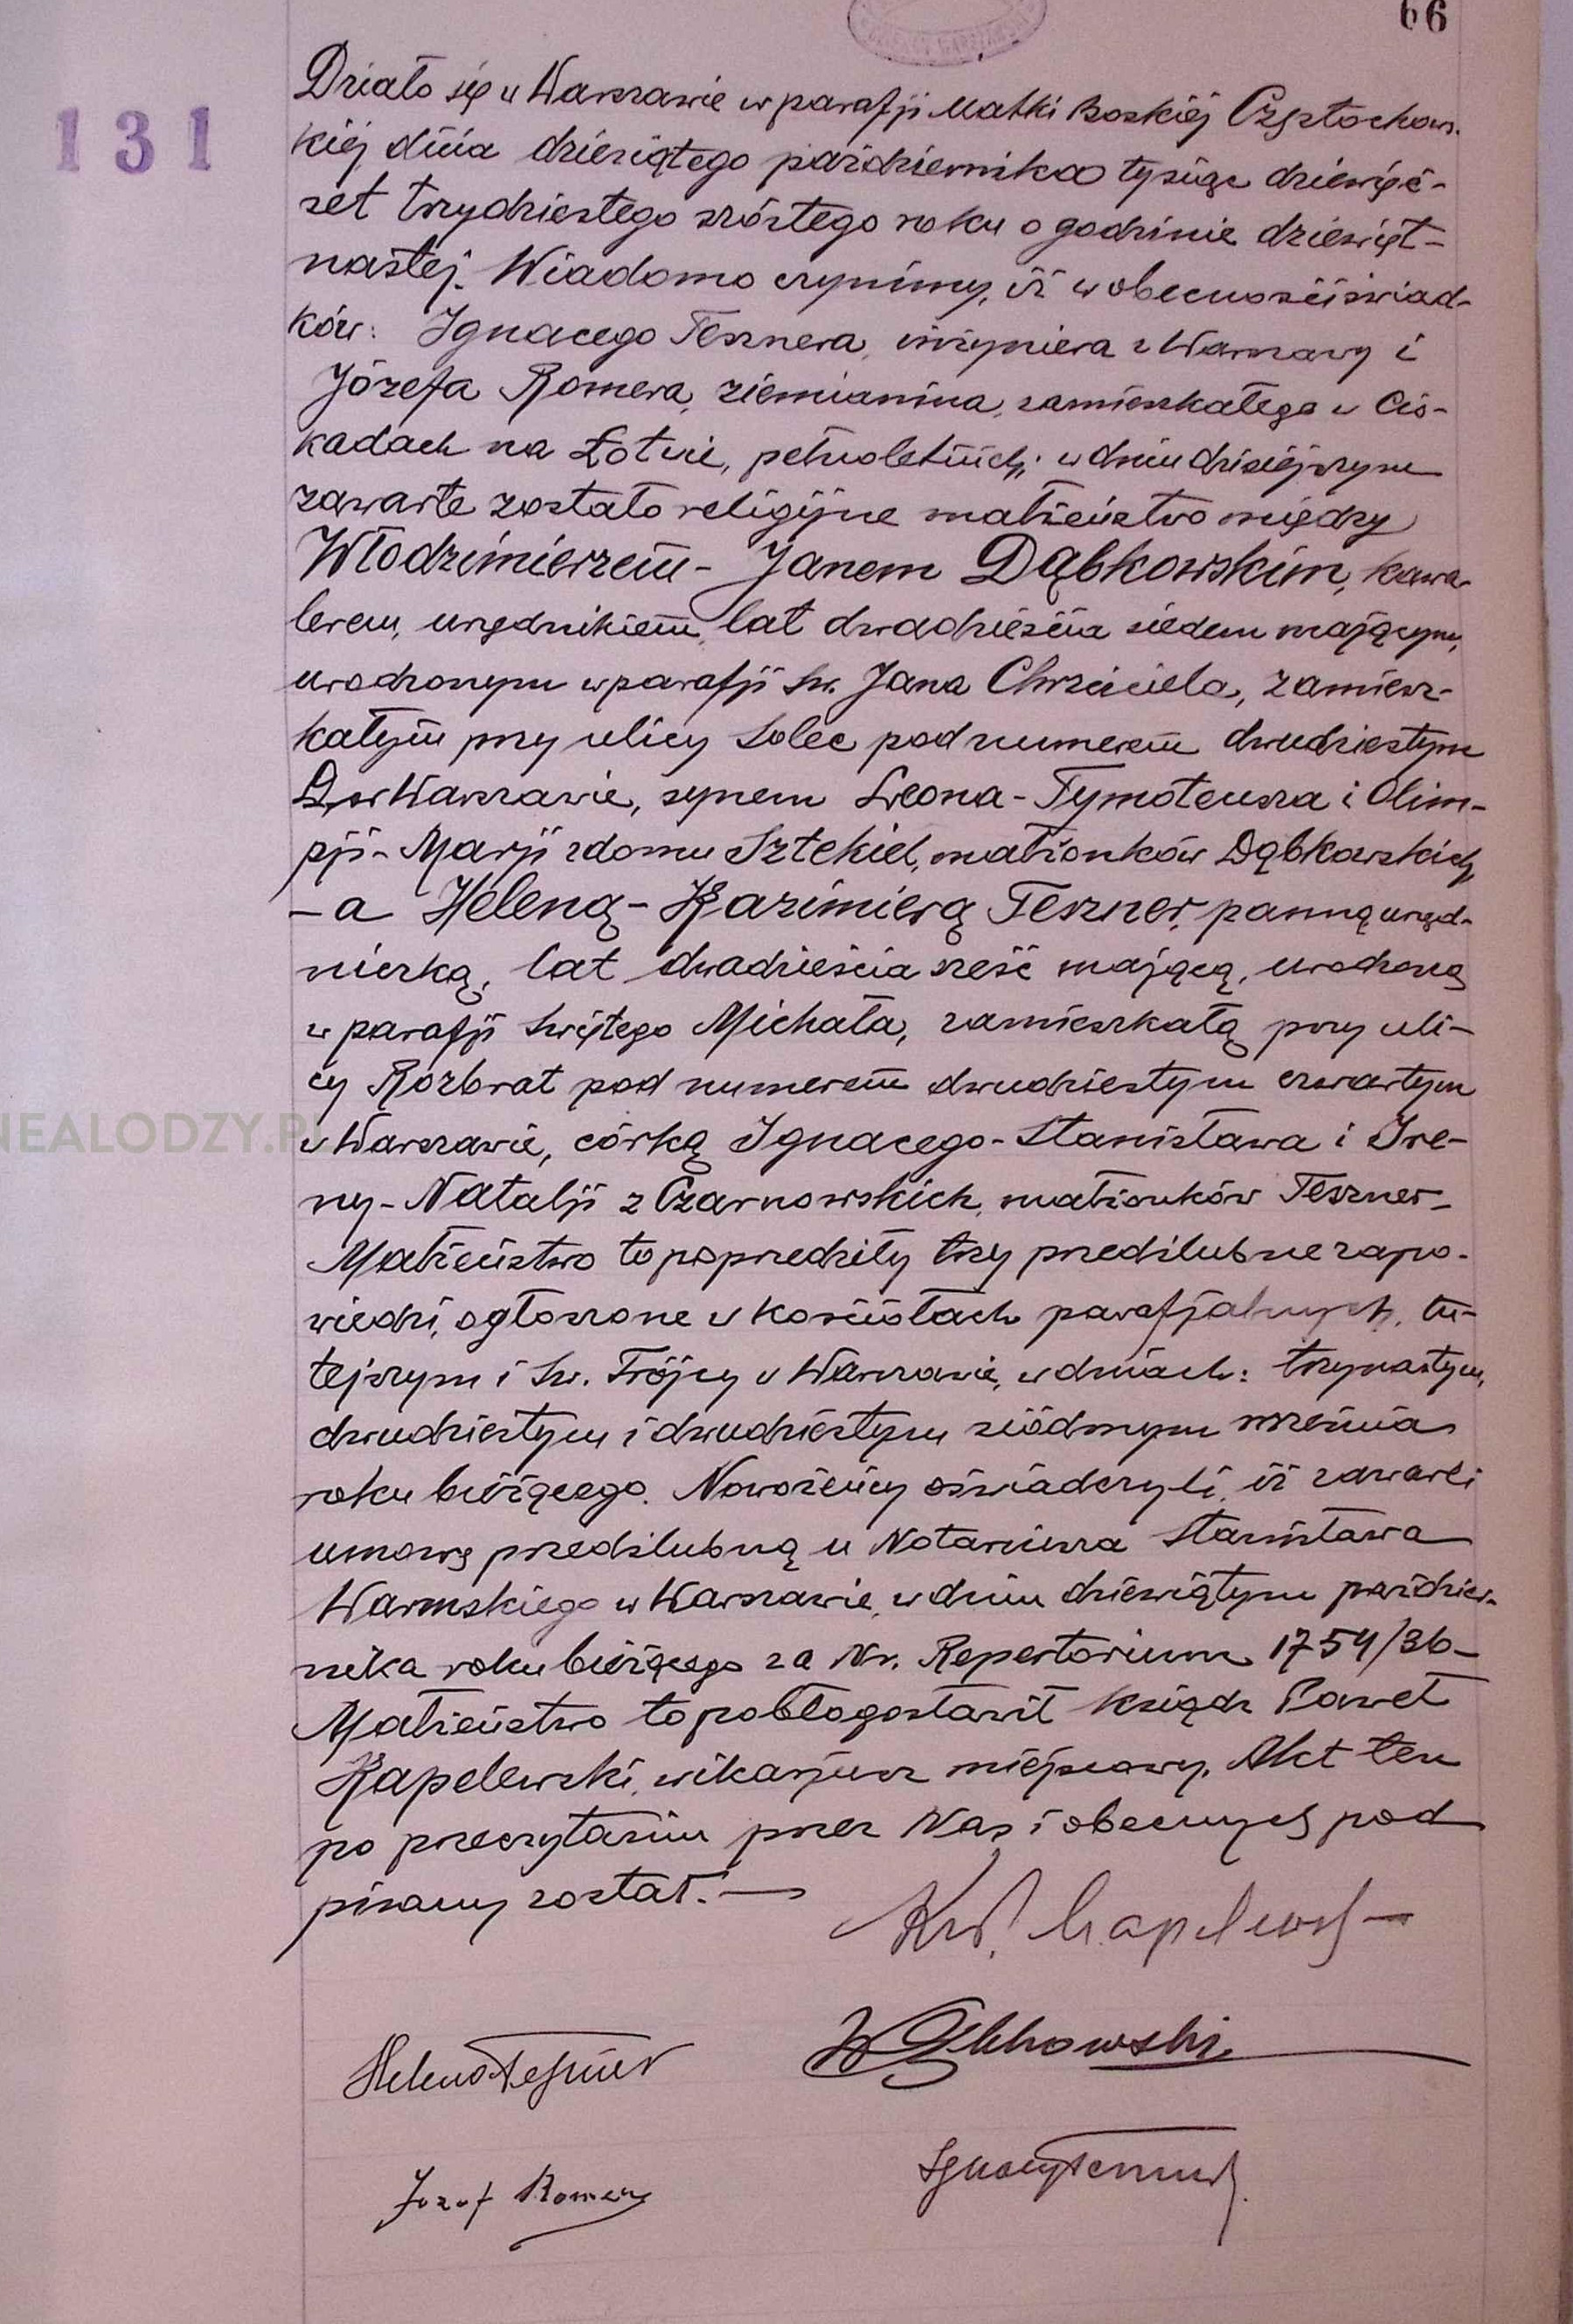 66
131
Działo się w Warszawie w parafji Matki Boskiéj Częstochow-
kiéj dnia dziesiątego października tysiąc dziewięć-
set trzydziestego szóstego roku o godzinie dziewięt-
nastej. Wiadomo czynimy, iż w obecności świad-
ków: Ignacego Tesznera, inżyniera z Warszawy i
Józefa Romera, ziemianina, zamieszkałego w Cis-
kadach na Łotwie, pełnoletnich; w dniu dzisiéjszym
zawarte zostało religijne małżeństwo między
Włodzimierzem-Janem Dąbkowskim, kawa-
lerem, urzędnikiem, lat dwadzieścia siedem mającym,
urodzonym w parafji św. Jana Chrzciciela, zamiesz-
kałym przy ulicy Solec pod numerem dwudziestym
w Warszawie, synem Leona-Tymoteusza i Olim-
pji-Marji z domu Sztekiel, małżonków Dąbkowskich,
-a Heleną-Kazimierą Teszner, panną, urzęd-
niczką, lat dwadzieścia sześć mającą, urodzoną
w parafji świętego Michała, zamieszkałą przy uli-
cy Rozbrat pod numerem dwudziestym czwartym
w Warszawie, córką Ignacego-Stanisława i Ire-
ny-Natalji z Czarnowskich, małżonków Teszner-
Małżeństwo to poprzedziły trzy przedślubne zapo-
wiedzi, ogłoszone w kościołach parafjalnych, tu-
tejszym i św. Trójcy w Warszawie, w dniach: trzynastym,
dwudziestym i dwudziestym siódmym września
roku bieżącego. Nowożeńcy oświadczyli, iż zawarli
umowę przedślubną u Notariusza Stanisława
Warmskiego w Warszawie, w dniu dziewiątym paździer-
nika roku bieżącego za Nr. Repertorium 1754/36-
Małżeństwo to pobłogosławił ksiądz Paweł
Kapelewski, wikarjusz miejscowy. Akt ten
po przeczytaniu przez Nas i obecnych pod
pisany został.—
Kapelewski
Helena Teszner
W Dąbkowski
Józef Romer
Ignacy Teszner
NEALODZY.P